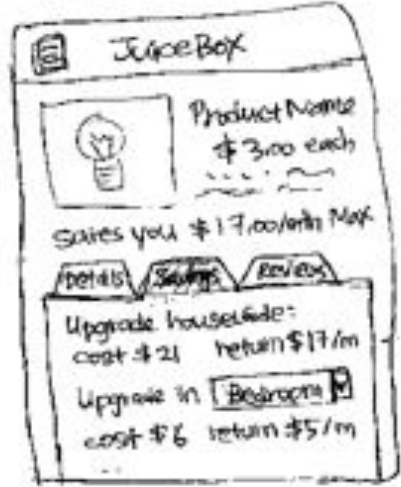 JuiceBox
Product Name
$3.00 each
Saves you $17.00/mth Max
Details Savings Reviews
Upgrade housewide:
cost $21 return $17/m
Upgrade in Bedroom
cost $6 return $5/m